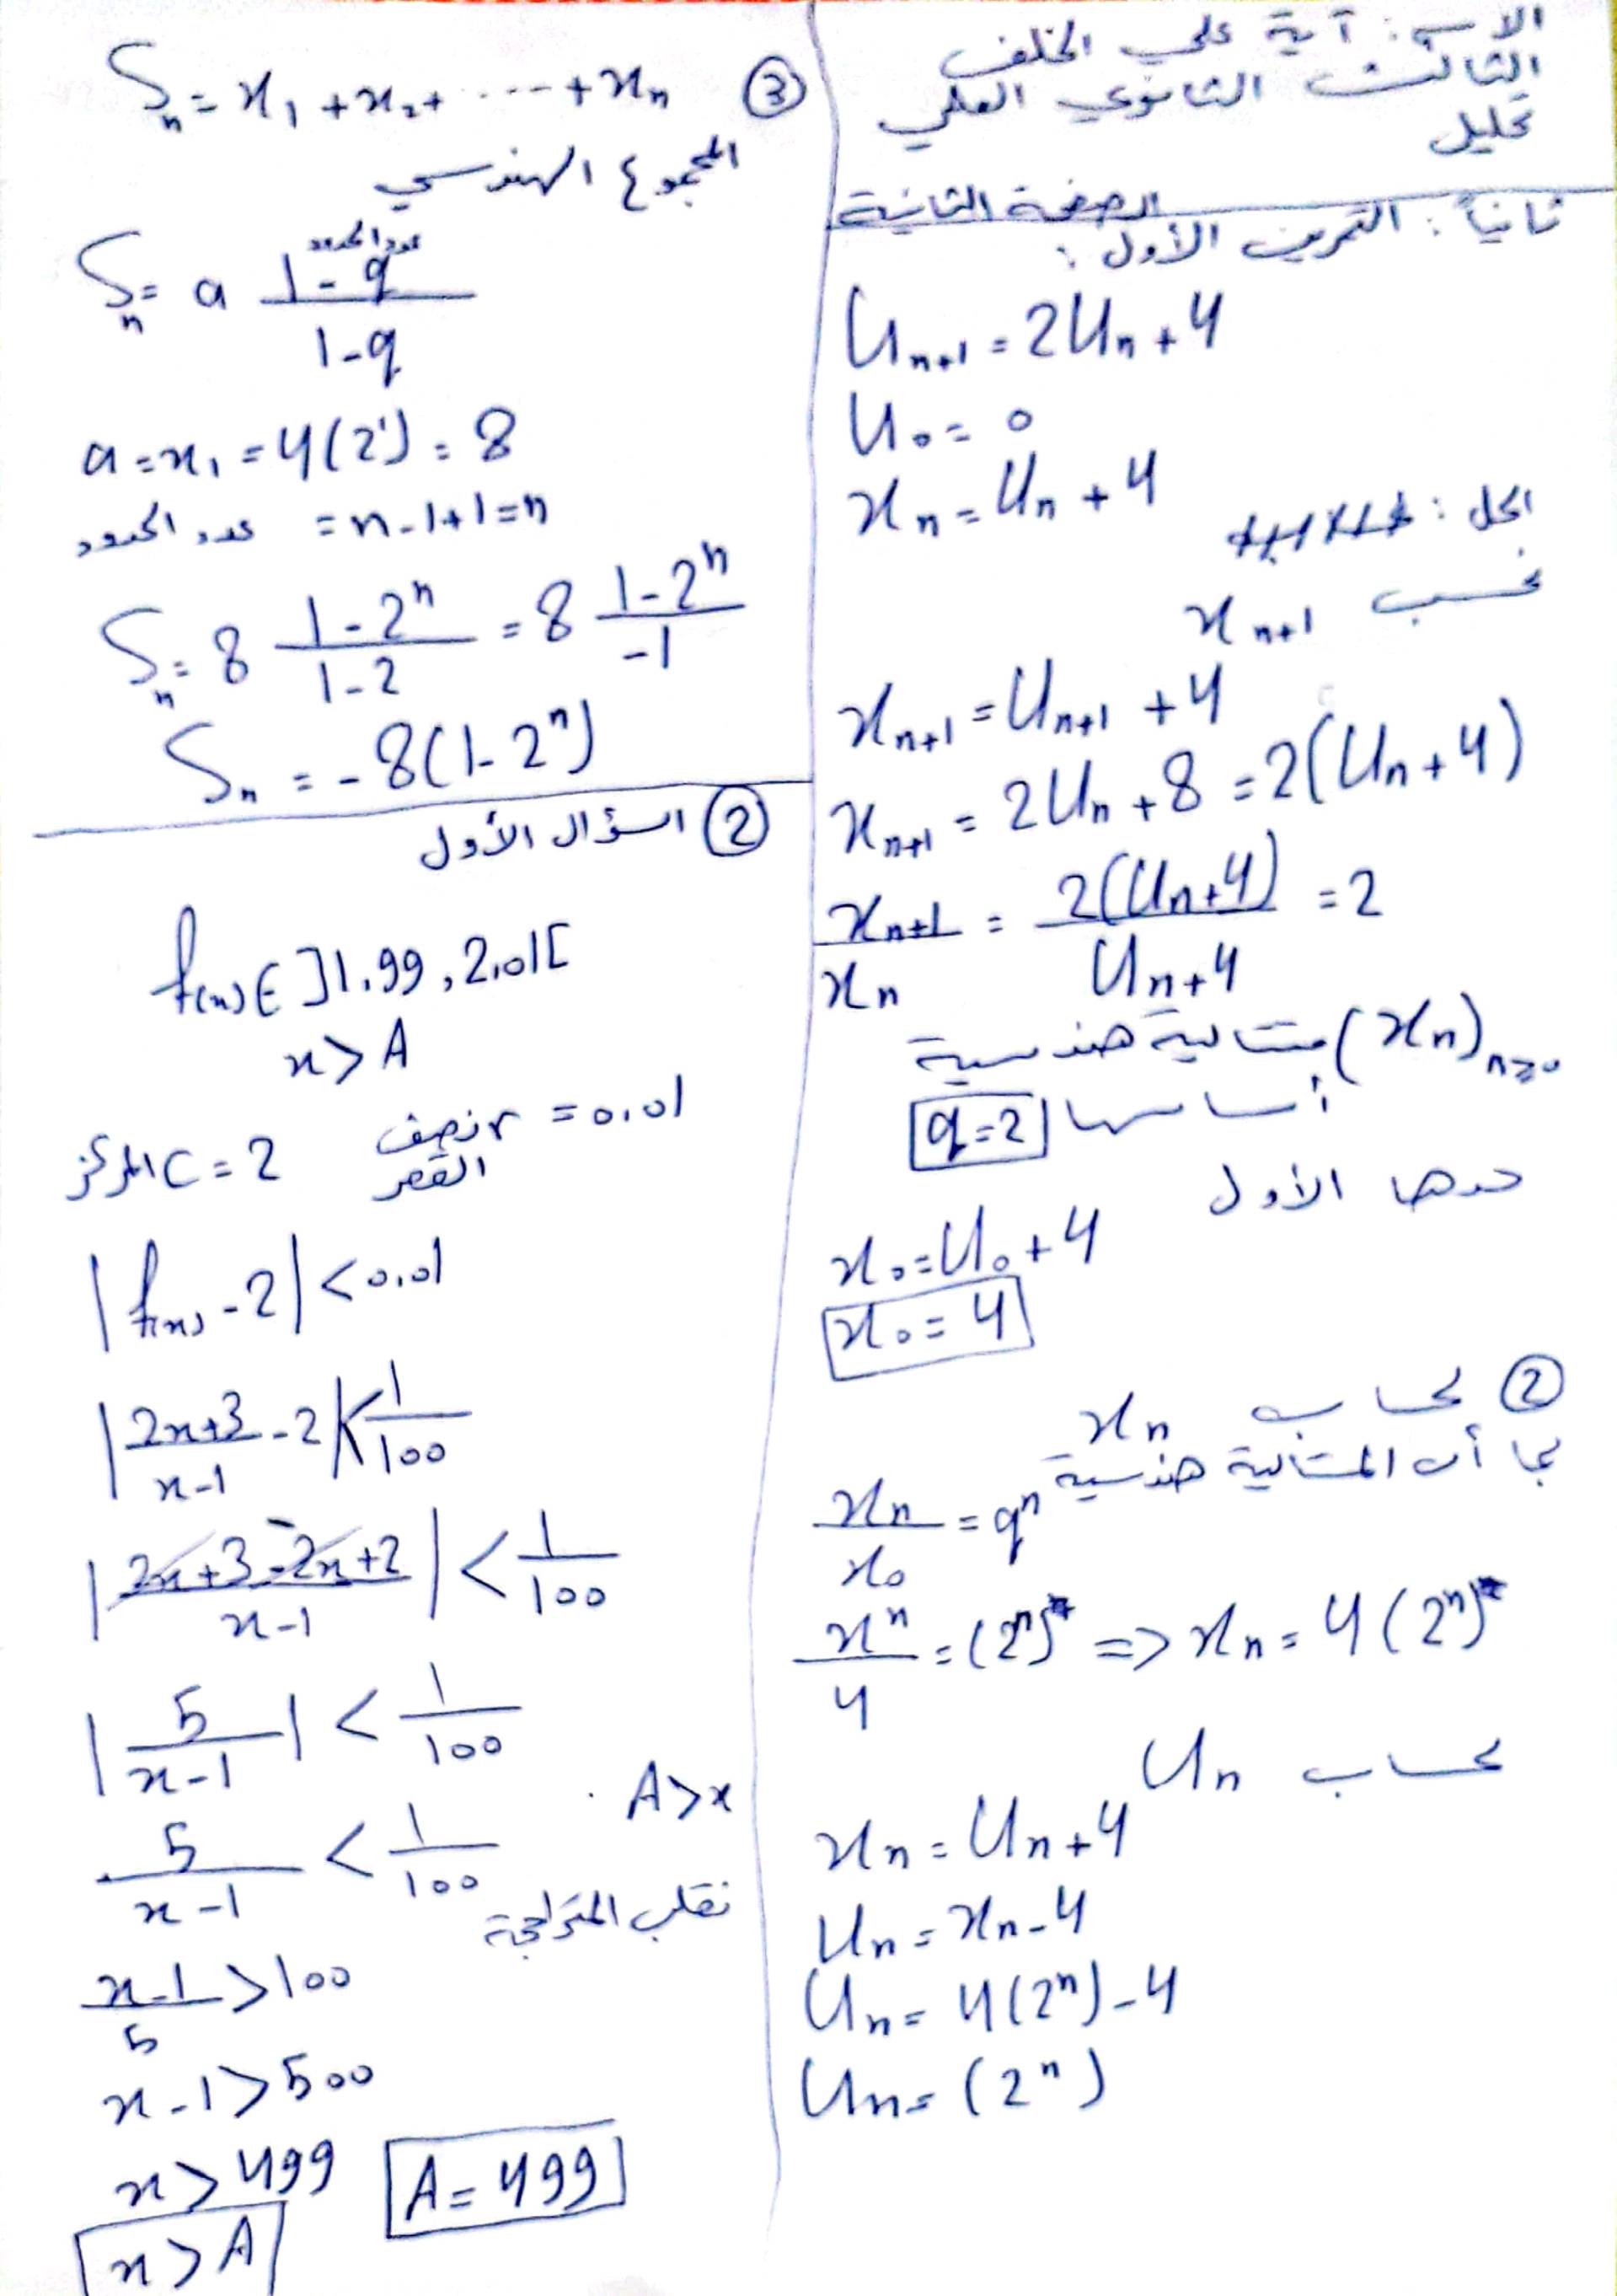 الاسم: آية علي الخلف
الثالث الثانوي العلمي
تحليل
الصفحة الثانية
ثانياً: التمرين الأول:
U_{n+1} = 2U_n + 4
U_0 = 0
x_n = U_n + 4
الحل:
نحسب x_{n+1}
x_{n+1} = U_{n+1} + 4
x_{n+1} = 2U_n + 8 = 2(U_n + 4)
x_{n+1}/x_n = 2(U_n+4)/U_n+4 = 2
(x_n)_{n≥0} متتالية هندسية
أساسها q=2
حدها الأول
x_0 = U_0 + 4
x_0 = 4
② لحساب x_n
بما أن المتتالية هندسية
x_n/x_0 = q^n
x^n/4 = (2^n) => x_n = 4(2^n)
لحساب U_n
x_n = U_n + 4
U_n = x_n - 4
U_n = 4(2^n) - 4
U_n = (2^n)
③ S_n = x_1 + x_2 + ... + x_n
المجموع الهندسي
S_n = a (1 - q^{عدد الحدود})/(1-q)
a = x_1 = 4(2^1) = 8
عدد الحدود = n-1+1 = n
S_n = 8 (1-2^n)/(1-2) = 8 (1-2^n)/-1
S_n = -8(1-2^n)
② السؤال الأول
f(x) ∈ ]1.99, 2.01[
x > A
المركز C = 2 نصف القطر r = 0.01
|f(x) - 2| < 0.01
|2x+3/x-1 - 2| < 1/100
|2x+3-2x+2/x-1| < 1/100
|5/x-1| < 1/100
A > x
5/x-1 < 1/100
نقلب المتراجحة
x-1/5 > 100
x-1 > 500
x > 499 A = 499
x > A